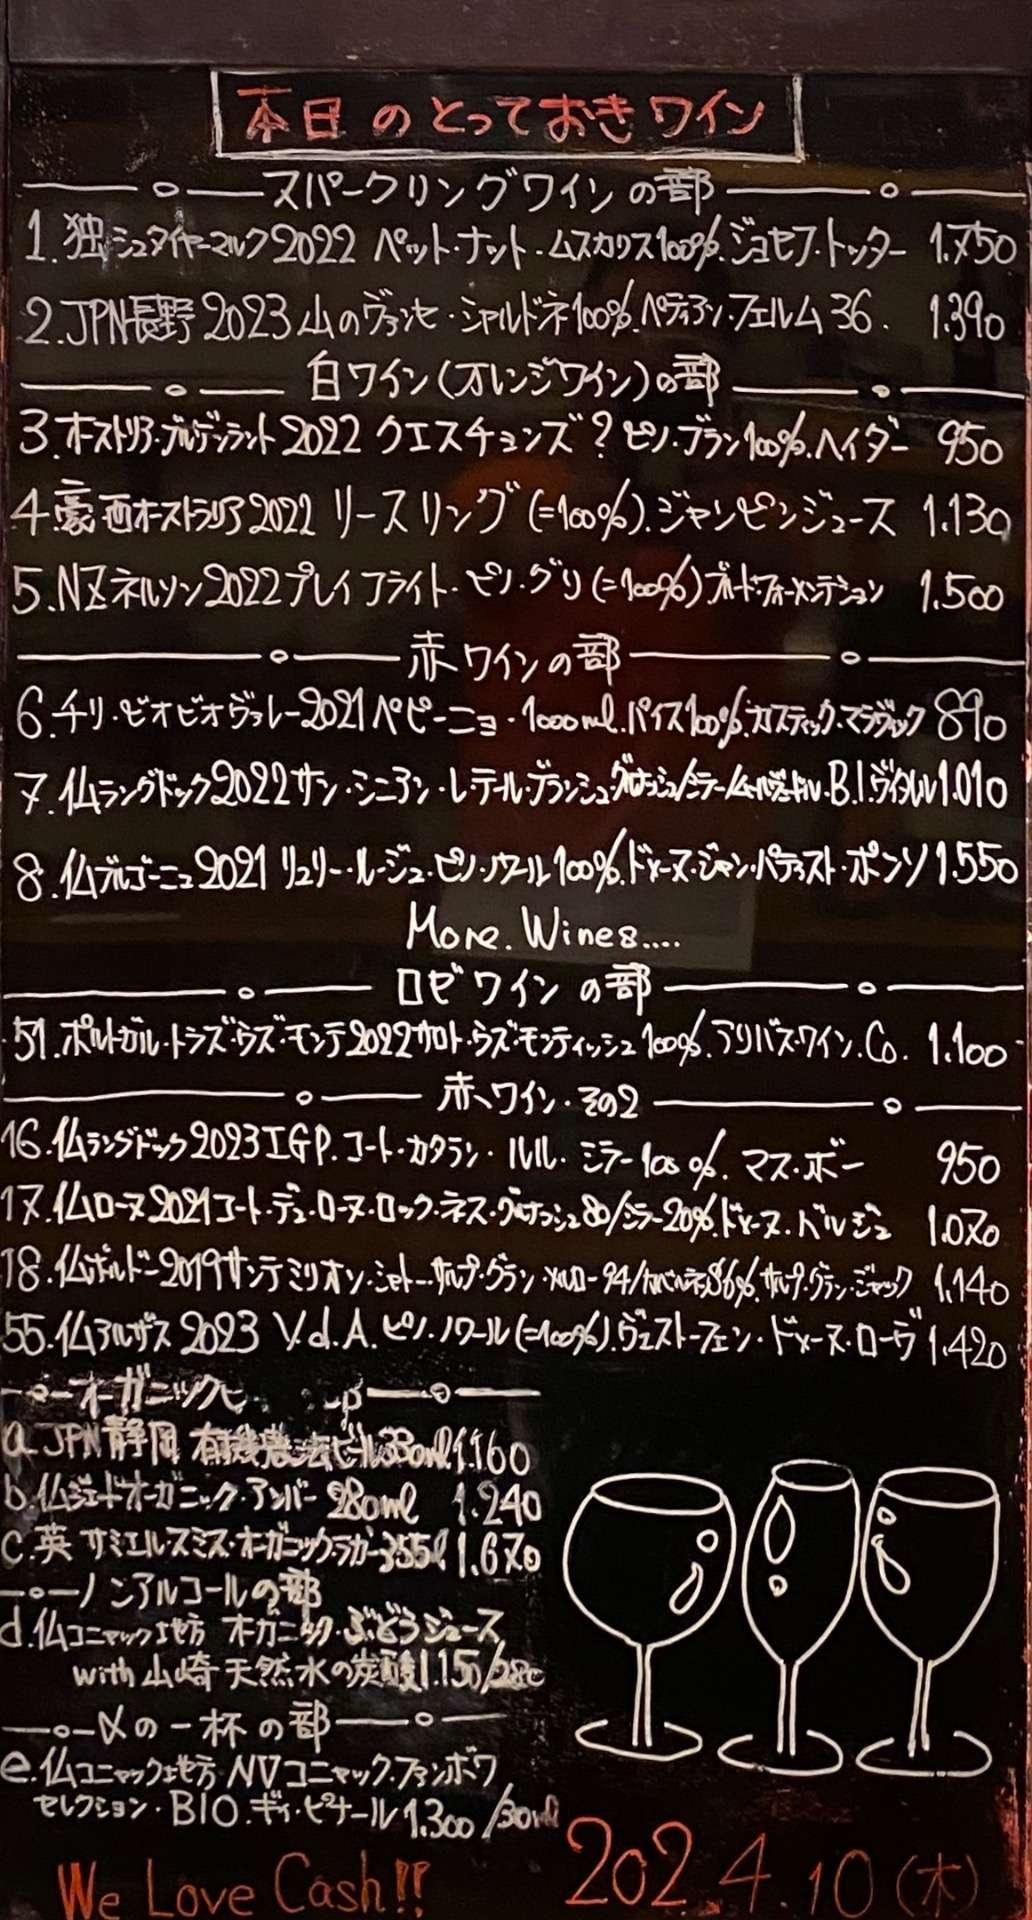 本日のとっておきワイン
スパークリングワインの部
1.独シュタイヤーマルク2022 ペット・ナット・ムスカリス100%.ジョセフ・トッター 1.750
2.JPN長野2023山のヴァンセ・シャルドネ100%.ペティアン・フェルム36. 1.390
白ワイン(オレンジワイン)の部
3.オーストリア・ブルゲンラント2022クエスチョンズ?ピノ・ブラン100%.ヘイダー 950
4.豪西オーストラリア2022リースリング(=100%).ジャンピンジュース 1.130
5.NZネルソン2022プレイフライト・ピノ・グリ(=100%)ブルード・ファーメンテーション 1.500
赤ワインの部
6.チリ・ビオビオヴァレー2021ペピーニョ・1000ml.パイス100%. 890
7.仏ラングドック2022サン・シニアン・レ・テール・ブランシュ・グルナッシュ/シラー/ムールヴェードル.B.I.ヴィタレル1.010
8.仏ブルゴーニュ2021リュリー・ルージュ・ピノ・ノワール100%.ドメーヌ・ジャン・バティスト・ポンソ1.550
More.Wines....
ロゼワインの部
51.ポルトガル・トラズ・ウズ・モンテ2022カロト・ウズ・モンティッシュ100%.アリバス・ワイン.Co. 1.100
赤ワイン・その2
16.仏ラングドック2023IGP.コート・カタラン・ルル・シラー100%.マス・ボー 950
17.仏ローヌ2021コート・デュ・ローヌ・ロック・ネス・グルナッシュ80/シラー20%.ドメーヌ・ベルジュ 1.070
18.仏ボルドー2019サンテミリオン・シャトー・サルプ・グラン・メルロー94/カベルネ6%.サルプ・グラン・ジャック 1.140
55.仏アルザス2023 V.d.A.ピノ・ノワール(=100%).ヴェストーフェン・ドメーヌ・ローヴ 1.420
オーガニックビ
a.JPN静岡 有機農法ビール330ml1.160
b.仏ジェードオーガニック・アンバー 280ml 1.240
c.英 サミエルスミス・オーガニック・ラガー355l1.670
ノンアルコールの部
d.仏コニャック地方 オーガニック・ぶどうジュース
with山崎天然水の炭酸1.150/280
〆の一杯の部
e.仏コニャック地方 NVコニャック.ファンボワ
セレクション・BIO.ギィ・ピナール1.300/30ml
We Love Cash!! 202.4.10(木)